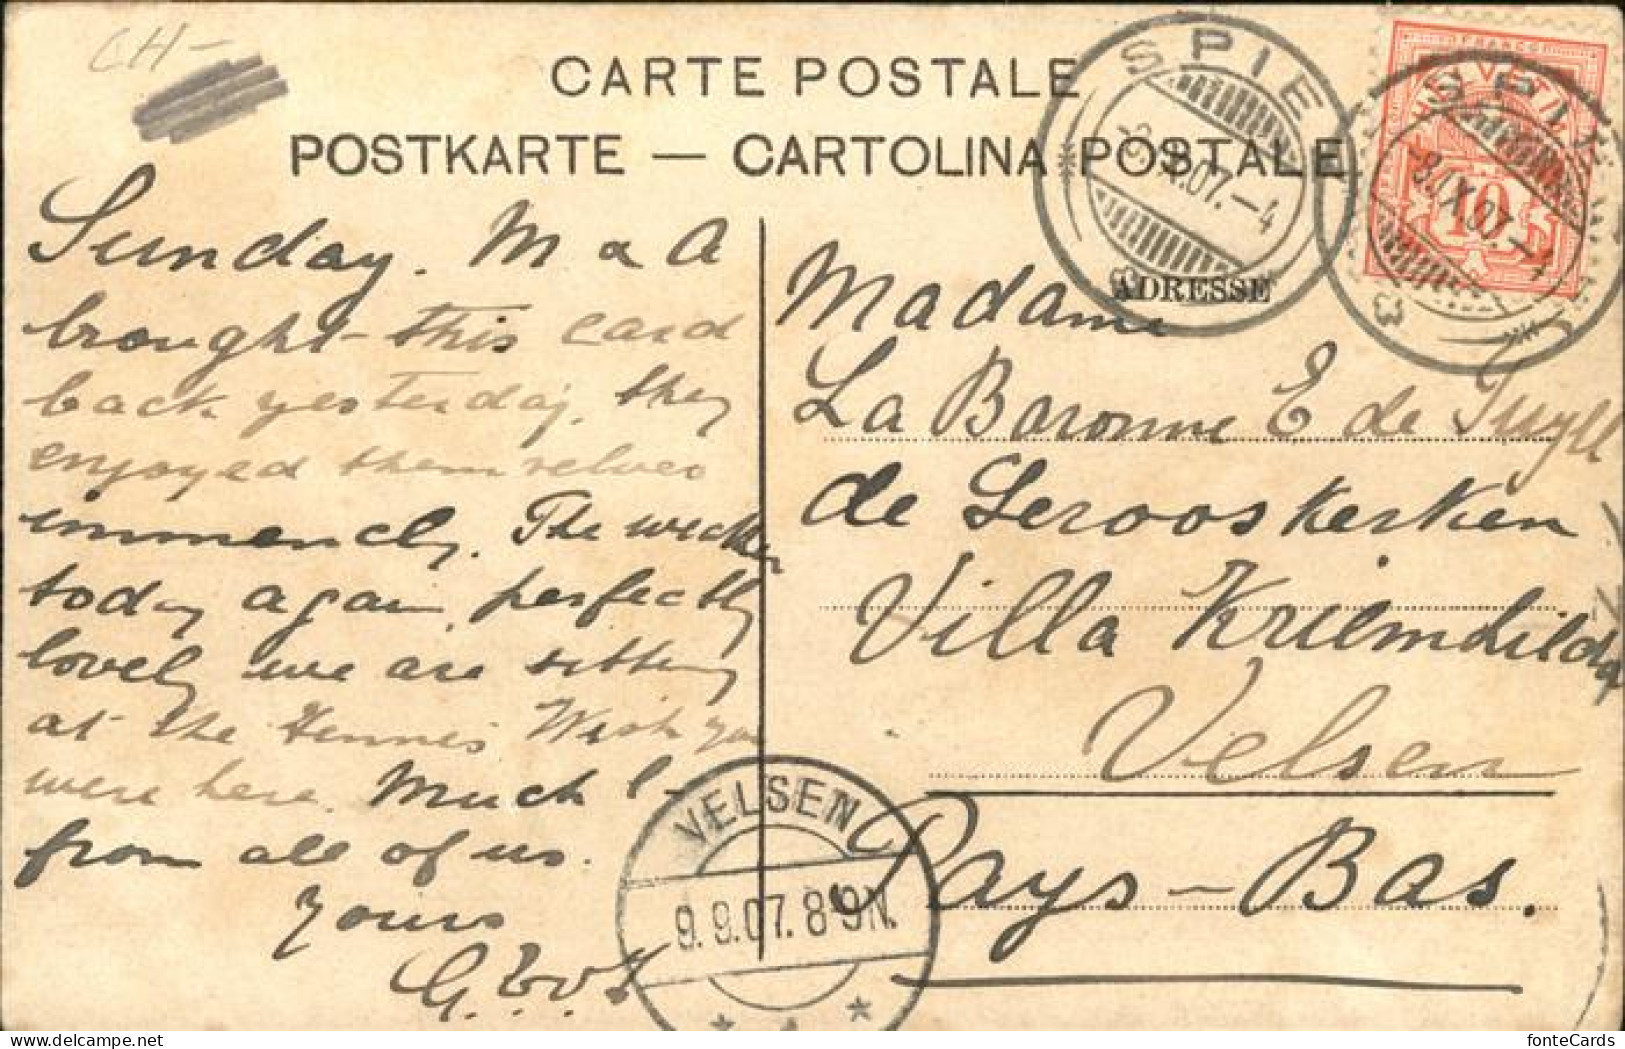 CH-
CARTE POSTALE
POSTKARTE — CARTOLINA POSTALE
SPIEZ
-8.IX.07.-4
FRANCO
HELVETIA
10
SPIEZ
-8.IX.07.-4
ADRESSE
Sunday. M & A
brought this card
back yesterday, they
enjoyed themselves
immencly. The weather
today again perfectly
lovely we are sitting
at the Tennis Wish you
were here. Much l-
from all of us.
Yours
Madame
La Baronne E de Tuyll
de Serooskerken
Villa Kriemhilda
Velsen
Pays-Bas.
VELSEN
9.9.07.8-9N.
fonteCards